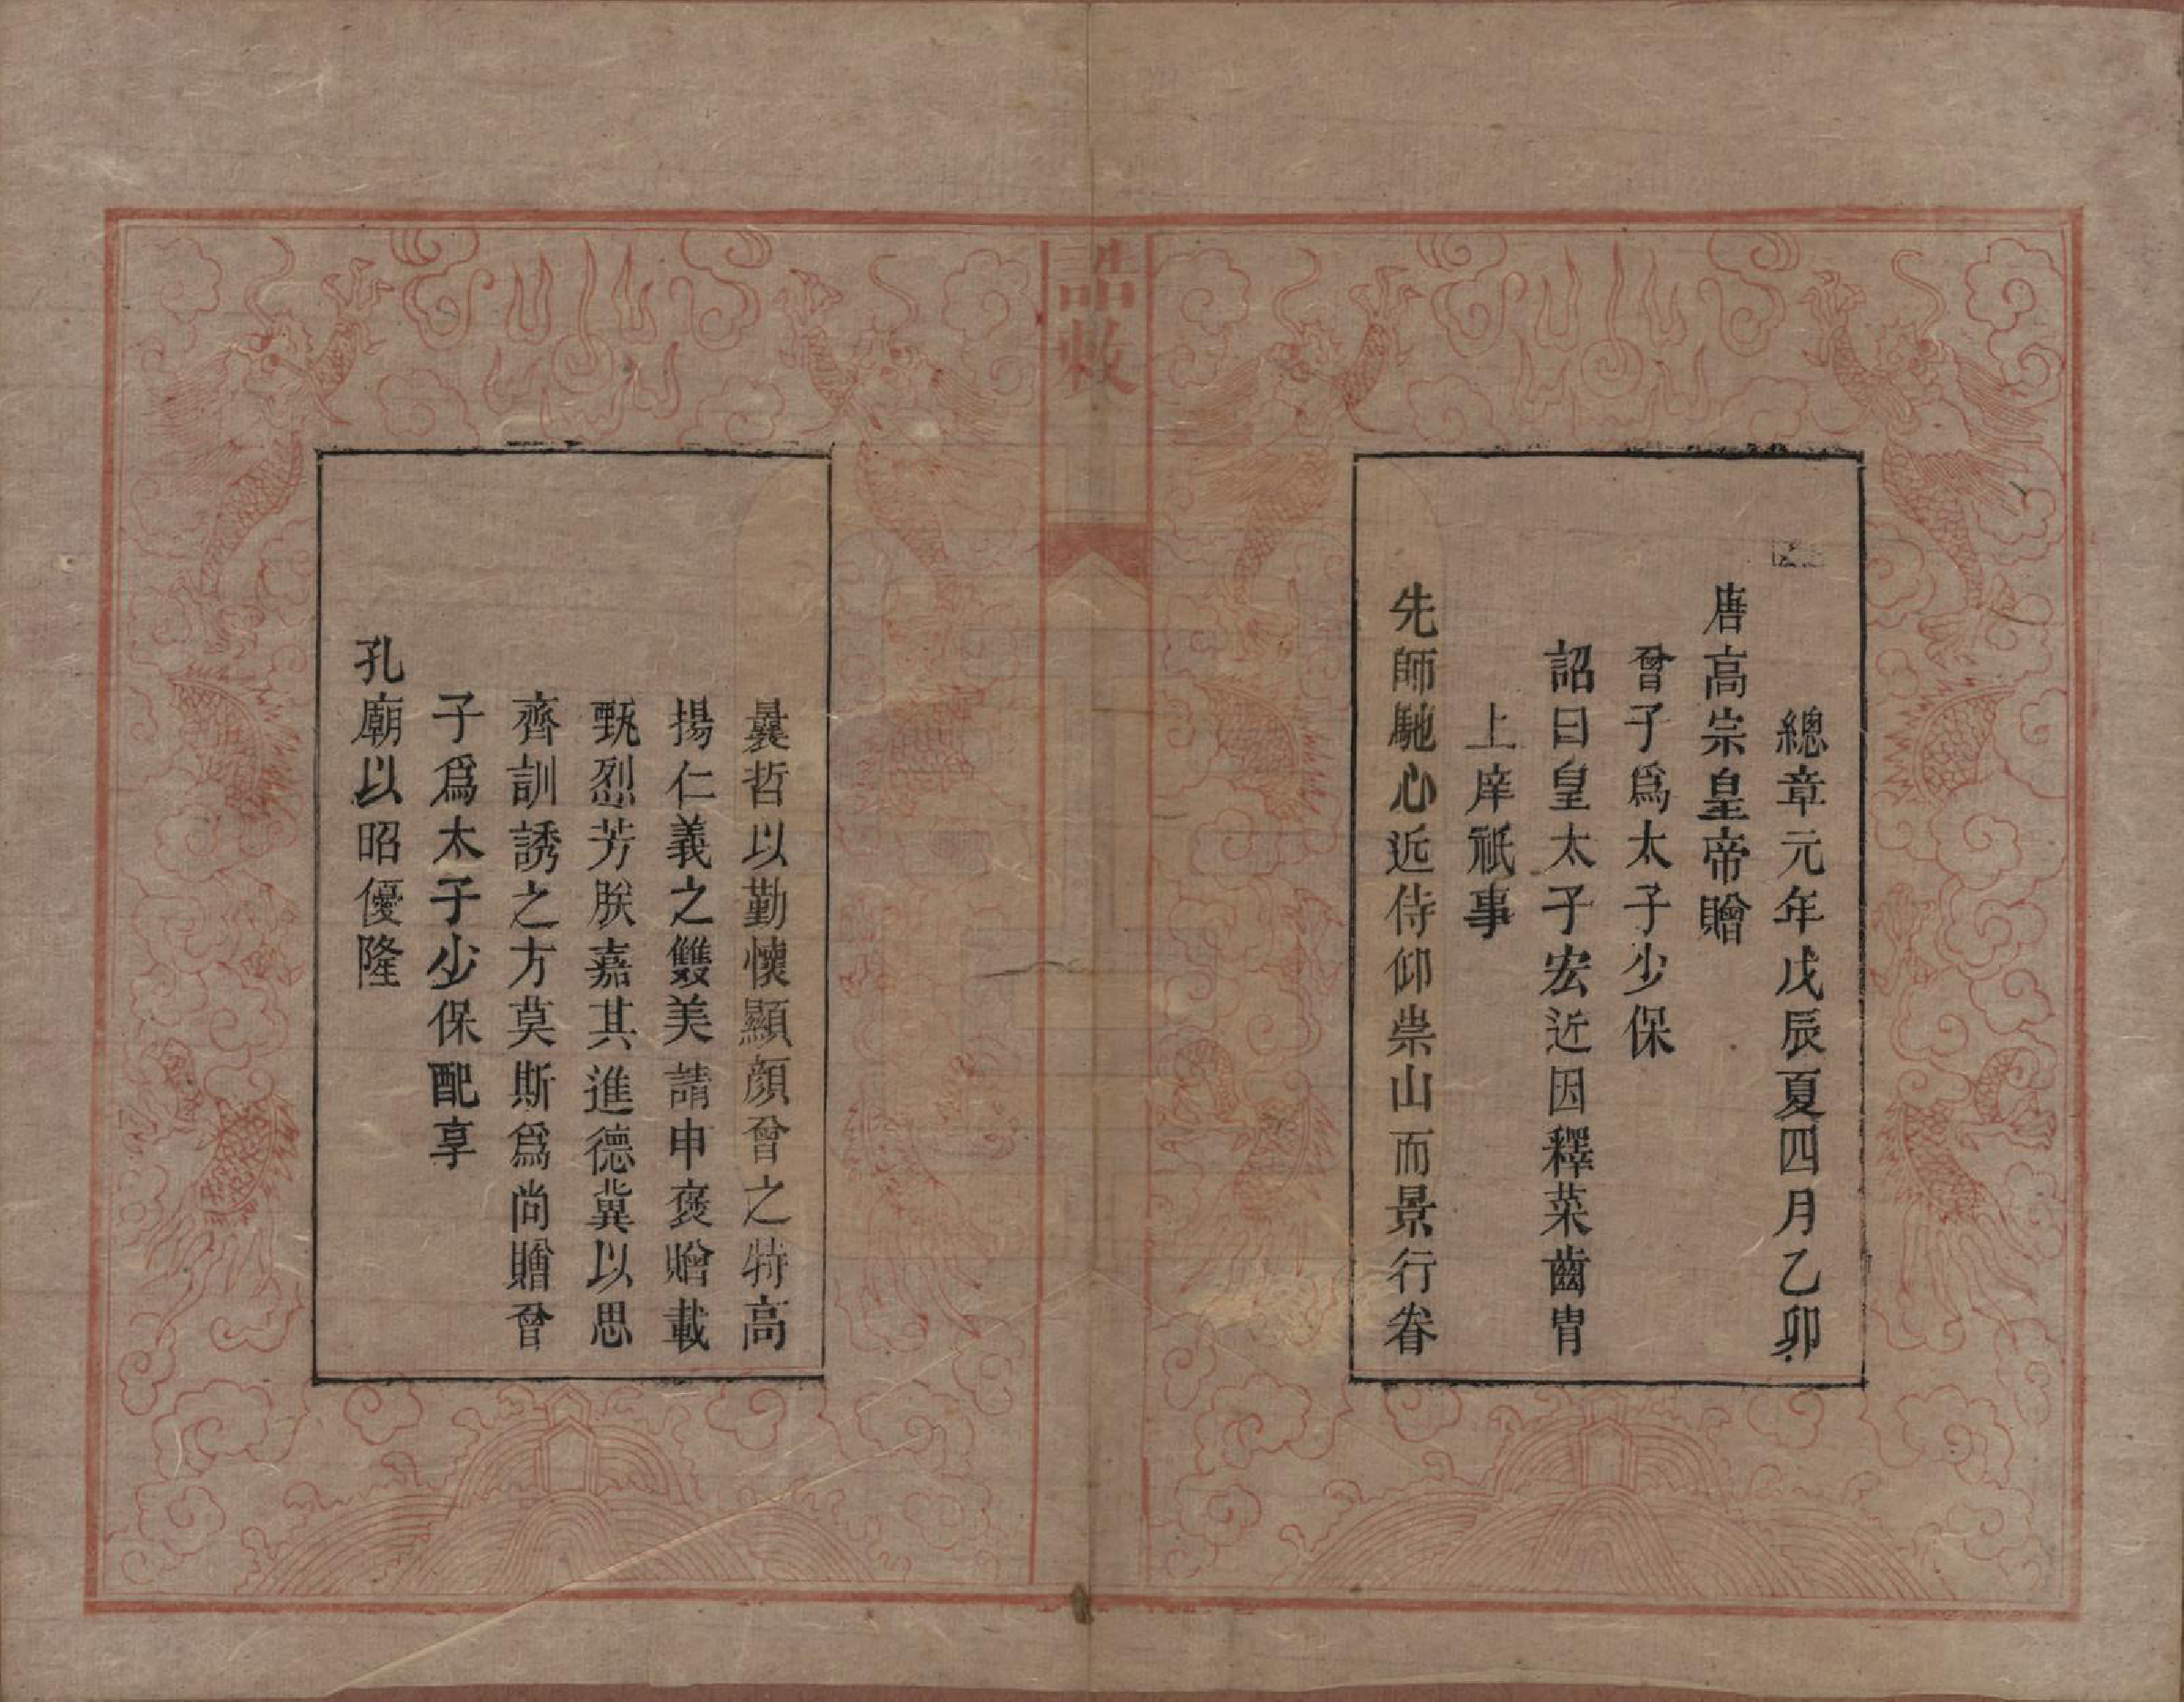 總章元年戊辰夏四月乙卯
唐高宗皇帝贈
曾子爲太子少保
詔曰皇太子宏近因釋菜齒胄
上庠祇事
先師馳心近侍仰崇山而景行眷
誥敕
曩哲以勤懷顯顏曾之特高
揚仁義之雙美請申褒贈載
甄烈芳朕嘉其進德冀以思
齊訓誘之方莫斯爲尚贈曾
子爲太子少保配享
孔廟以昭優隆